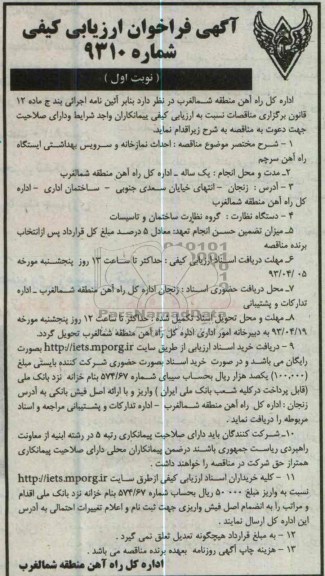 آگهی فراخوان ارزیابی کیفی
شماره ۹۳۱۰
( نوبت اول )
اداره کل راه آهن منطقه شمالغرب در نظر دارد بنابر آئین نامه اجرائی بند ج ماده ۱۲
قانون برگزاری مناقصات نسبت به ارزیابی کیفی پیمانکاران واجد شرایط ودارای صلاحیت
جهت دعوت به مناقصه به شرح زیراقدام نماید.
۱ - شرح مختصر موضوع مناقصه : احداث نمازخانه و سرویس بهداشتی ایستگاه
راه آهن سرچم
۲- مدت و محل انجام : یک ساله - اداره کل راه آهن منطقه شمالغرب
۳ - آدرس : زنجان - انتهای خیابان سعدی جنوبی - ساختمان اداری - اداره
کل راه آهن منطقه شمالغرب
۴ - دستگاه نظارت : گروه نظارت ساختمان و تاسیسات
۵- میزان تضمین حسن انجام تعهد: معادل ۵ درصد مبلغ کل قرارداد پس ازانتخاب
برنده مناقصه
۶- مهلت دریافت اسناد ارزیابی کیفی : حداکثر تا ساعت ۱۳ روز پنجشنبه مورخه
۹۳/۰۴/۰۵
۷- محل دریافت حضوری اسناد : زنجان اداره کل راه آهن منطقه شمالغرب - اداره
تدارکات و پشتیبانی
۸- مهلت و محل تحویل اسناد تکمیل شده : حداکثر تا ساعت ۱۲ روز پنجشنبه مورخه
۹۳/۰۴/۱۹ به دبیرخانه امور اداری اداره کل راه آهن منطقه شمالغرب تحویل گردد.
۹ - دریافت خرید اسناد ارزیابی از طریق سایت http://iets.mporg.ir بصورت
رایگان می باشد و در صورت خرید اسناد بصورت حضوری شرکت کننده بایستی مبلغ
(۱۰۰,۰۰۰) یکصد هزار ریال بحساب سیبای شماره ۵۷۴/۶۷ بنام خزانه نزد بانک ملی
(قابل پرداخت درکلیه شعب بانک ملی ایران ) واریز و با ارائه اصل فیش بانکی به آدرس
زنجان : اداره کل راه آهن منطقه شمالغرب - اداره تدارکات و پشتیبانی مراجعه و اسناد
مربوطه را دریافت نماید .
۱۰- شرکت کنندگان باید دارای صلاحیت پیمانکاری رتبه ۵ در رشته ابنیه از معاونت
راهبردی ریاست جمهوری باشند درضمن پیمانکاران محلی دارای صلاحیت پیمانکاری
همتراز حق شرکت در مناقصه را خواهند داشت .
۱۱ - کلیه خریداران اسناد ارزیابی کیفی ازطرق سایت http://iets.mporg.ir
نسبت به واریز مبلغ ۵۰۰۰۰ ریال بحساب شماره ۵۷۴/۶۷ بنام خزانه نزد بانک ملی اقدام
و مراتب را به انضمام اصل فیش واریزی جهت ثبت نام و اعلام تغییرات احتمالی به آدرس
این اداره کل ارسال نمایند .
۱۲ - به مبلغ قرارداد هیچگونه تعدیل تعلق نمی گیرد .
۱۳ - هزینه چاپ آگهی روزنامه بعهده برنده مناقصه می باشد .
اداره کل راه آهن منطقه شمالغرب